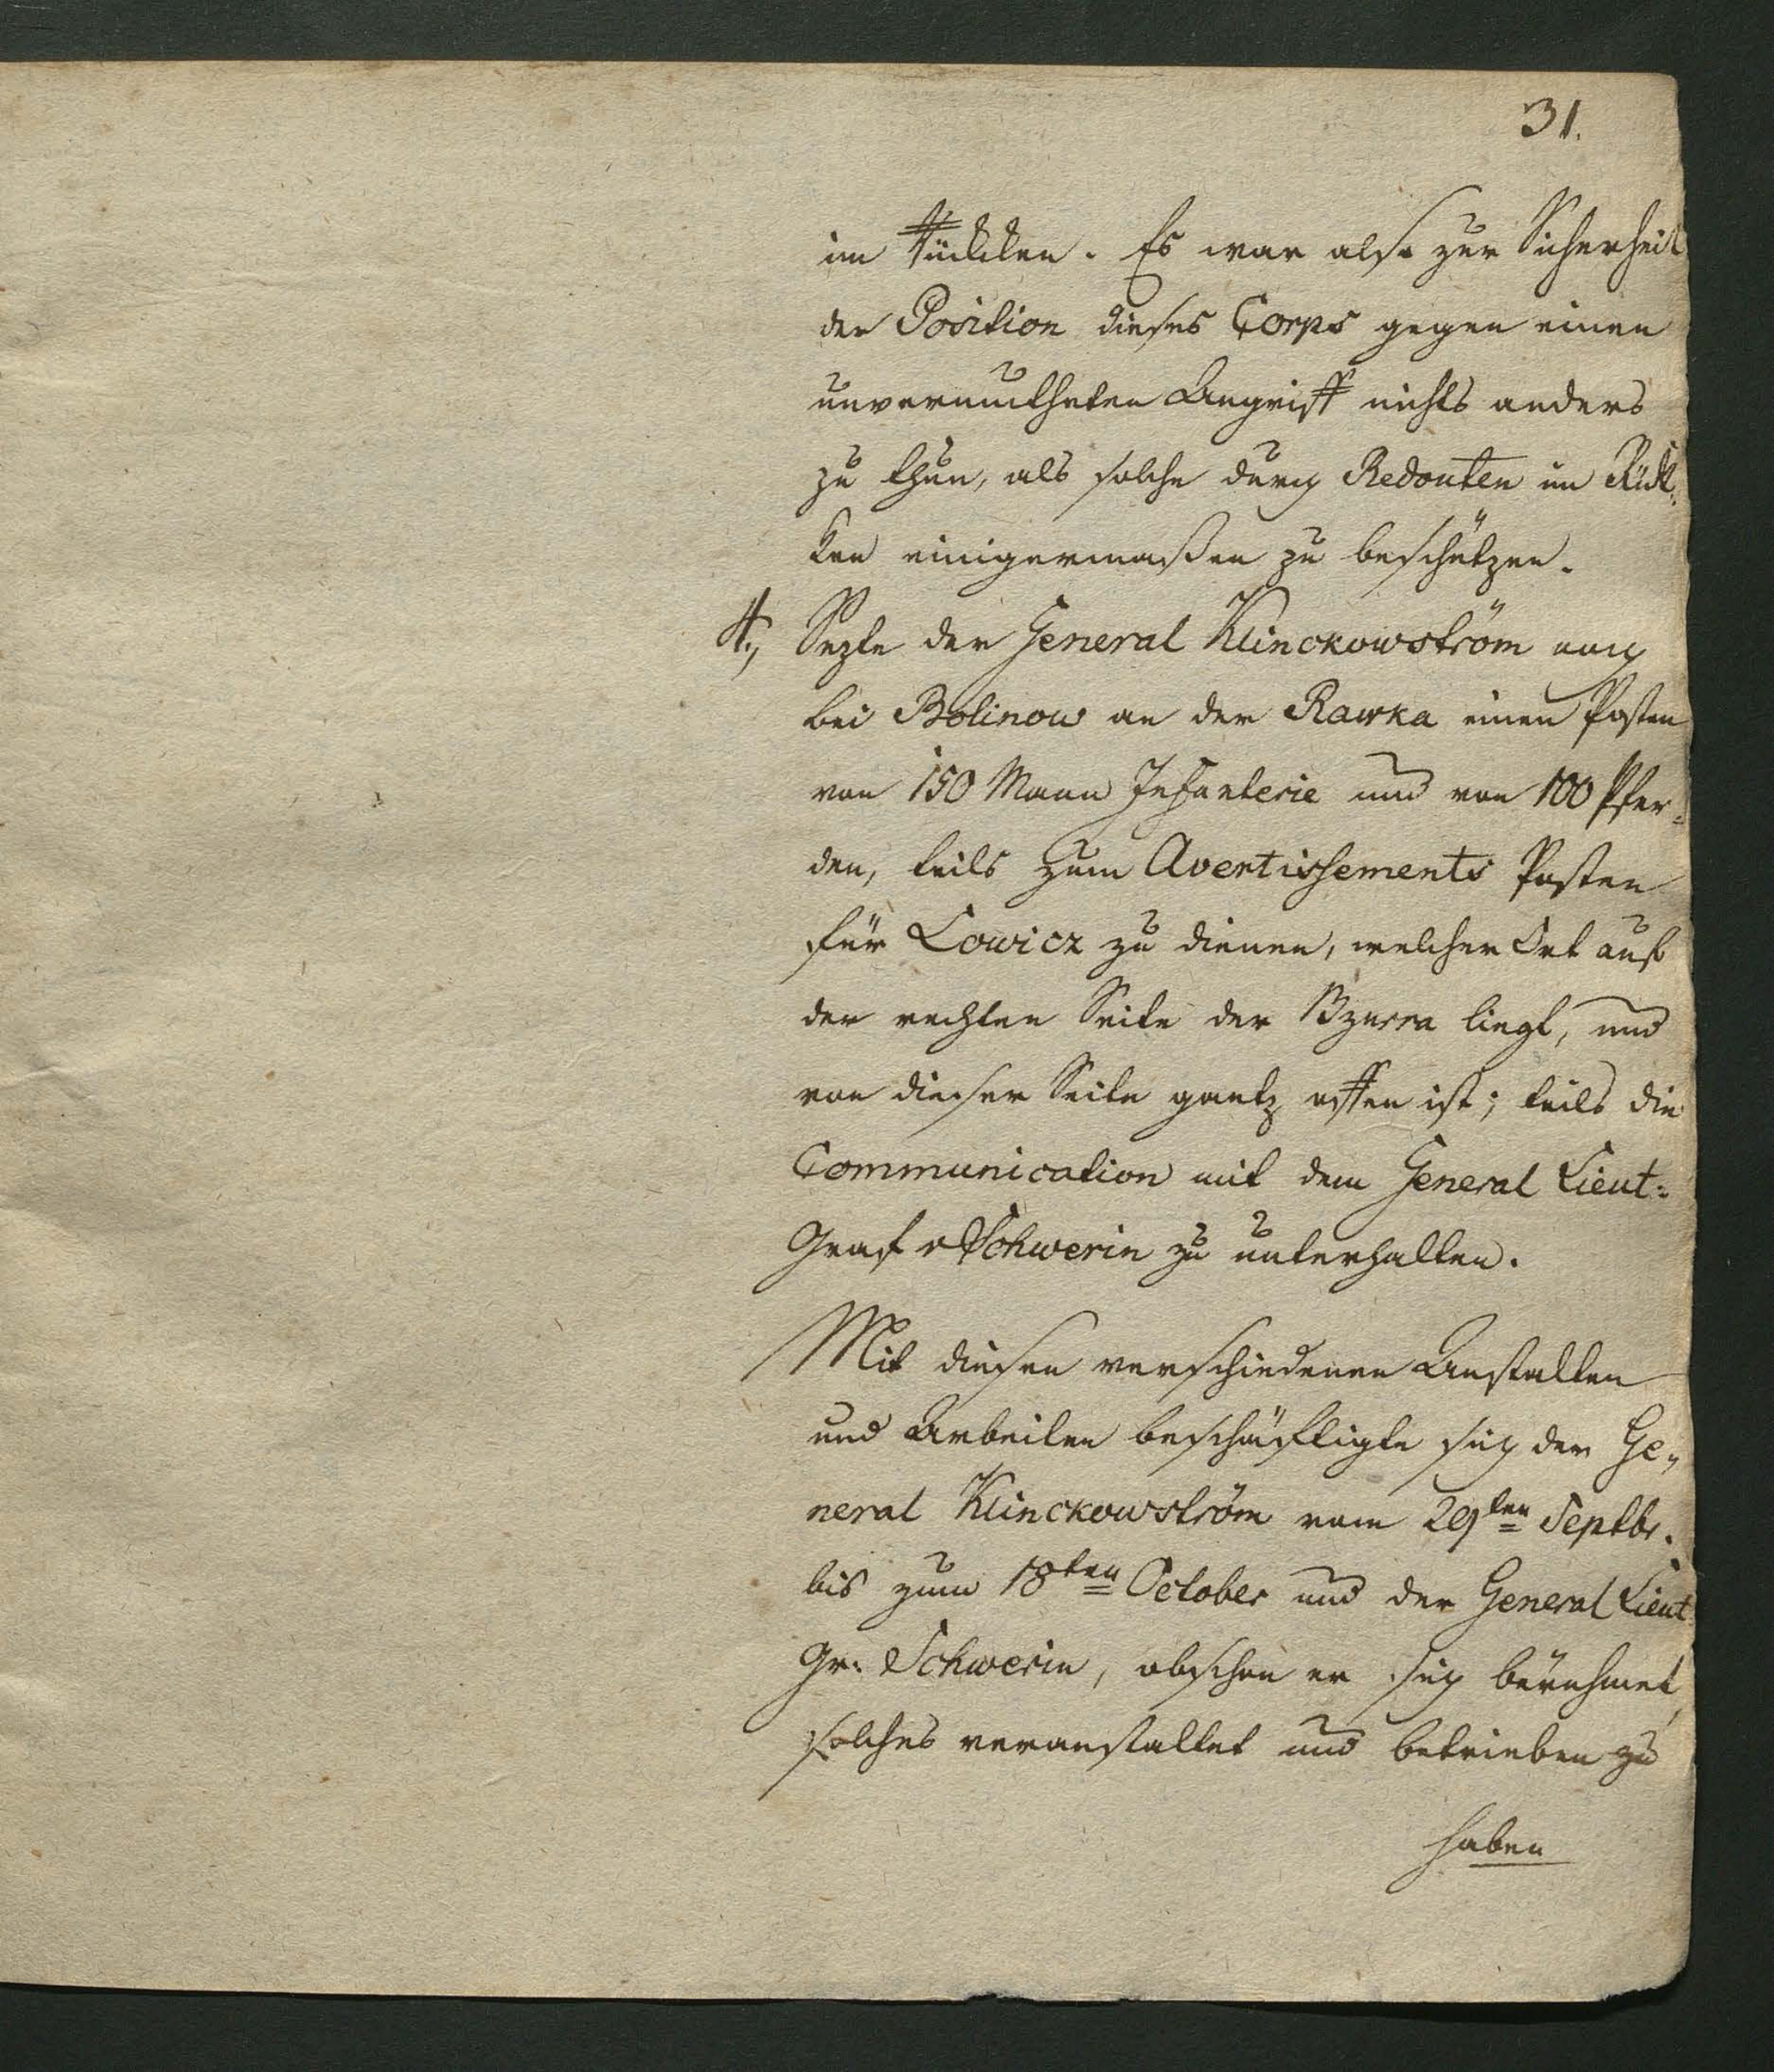 31.
im Rückken. Es war also zur Sicherheit
der Position dieses Corps gegen einen
unvermutheten Angriff nichts anders
zu thun, als solche durch Redouten im Rük-
ken einigermaßen zu beschützen.
4., Sezte der General Klinckowström noch
bei Bolinow an der Rawka einen Posten
von 150 Mann Infanterie und von 100 Pfer-
den, teils zum Avertissements Posten
für Lowicz zu dienen, welcher Ort auf
der rechten Seite der Bzurra liegt, und
von dieser Seite gantz offen ist; teils die
Communication mit dem General Lieut:
Graf v Schwerin zu unterhalten.
Mit diesen verschiedenen Anstalten
und Arbeiten beschäftigte sich der Ge-
neral Klinckowström vom 29ten Septbr.
bis zum 18ten October und der General Lieut
Gr: Schwerin, obschon er sich berühmet,
solches veranstaltet und betrieben zu
haben